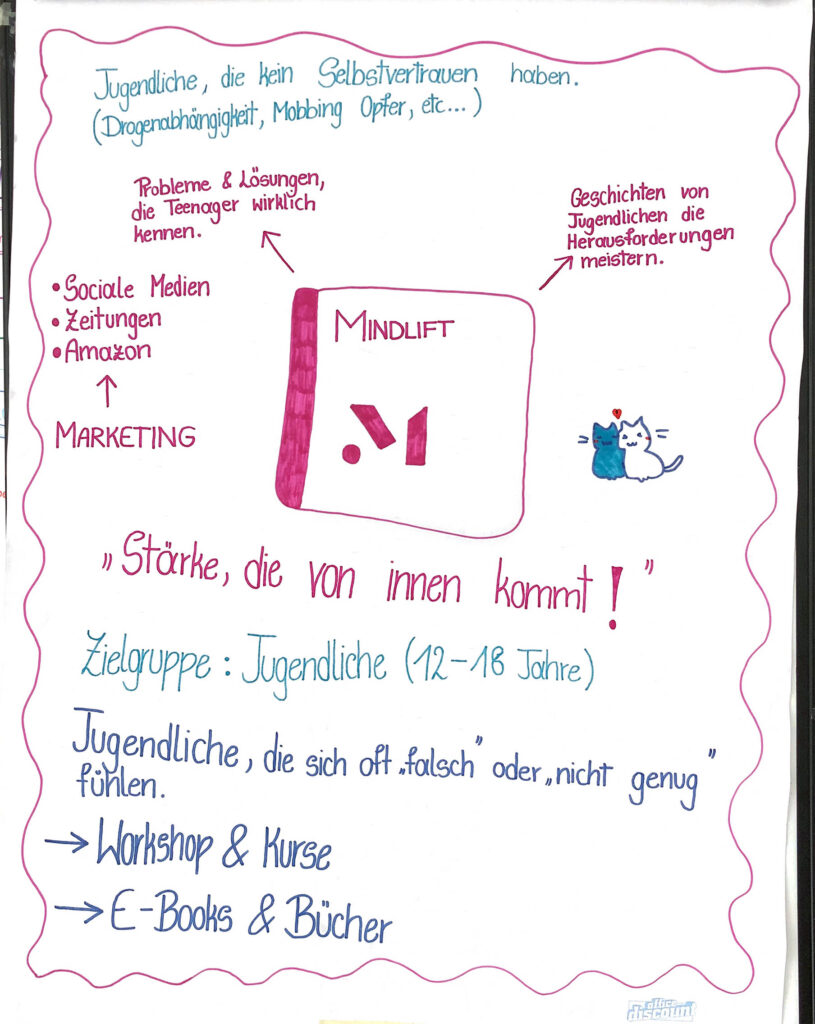 Jugendliche, die kein Selbstvertrauen haben.
(Drogenabhängigkeit, Mobbing Opfer, etc...)
Probleme & Lösungen,
die Teenager wirklich
kennen.
Geschichten von
Jugendlichen die
Herausforderungen
meistern.
• Sociale Medien
• Zeitungen
• Amazon
MARKETING
MINDLIFT
M
„Stärke, die von innen kommt!”
Zielgruppe: Jugendliche (12-18 Jahre)
Jugendliche, die sich oft „falsch” oder „nicht genug”
fühlen.
→ Workshop & Kurse
→ E-Books & Bücher
office
discount